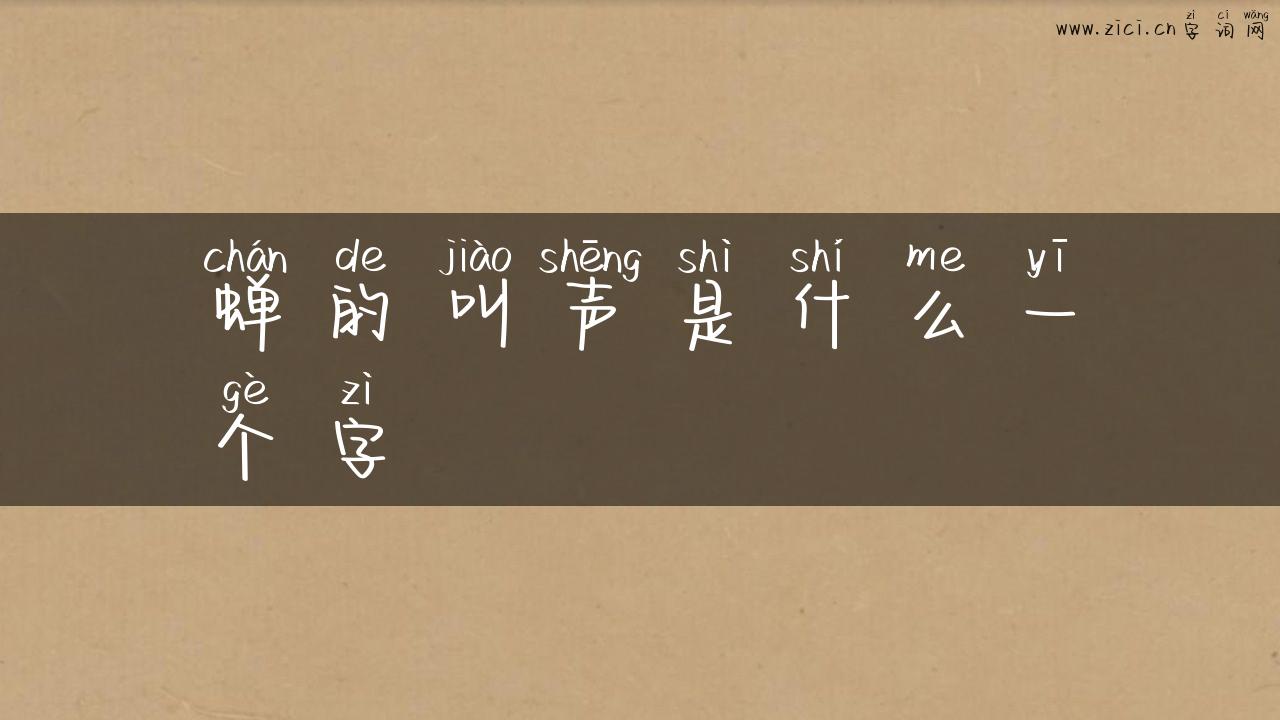 zì cí wǎng
www.zici.cn 字词网
chán de jiào shēng shì shí me yī
蝉的叫声是什么一
gè zì
个字